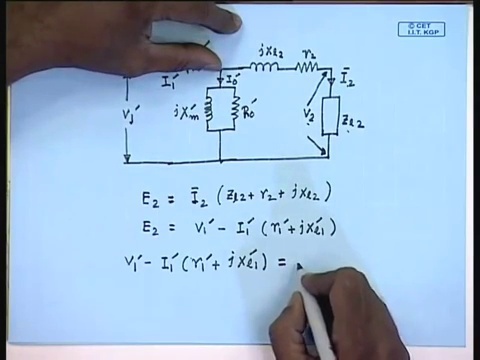 © CET
I.I.T. KGP
jxl2 r2
I1' I0' Ī2
V1' jXm' R0' V2 Zl2
E2 = Ī2 (Zl2 + r2 + jxl2)
E2 = V1' - I1' (r1' + jxl1')
V1' - I1' (r1' + jxl1') =